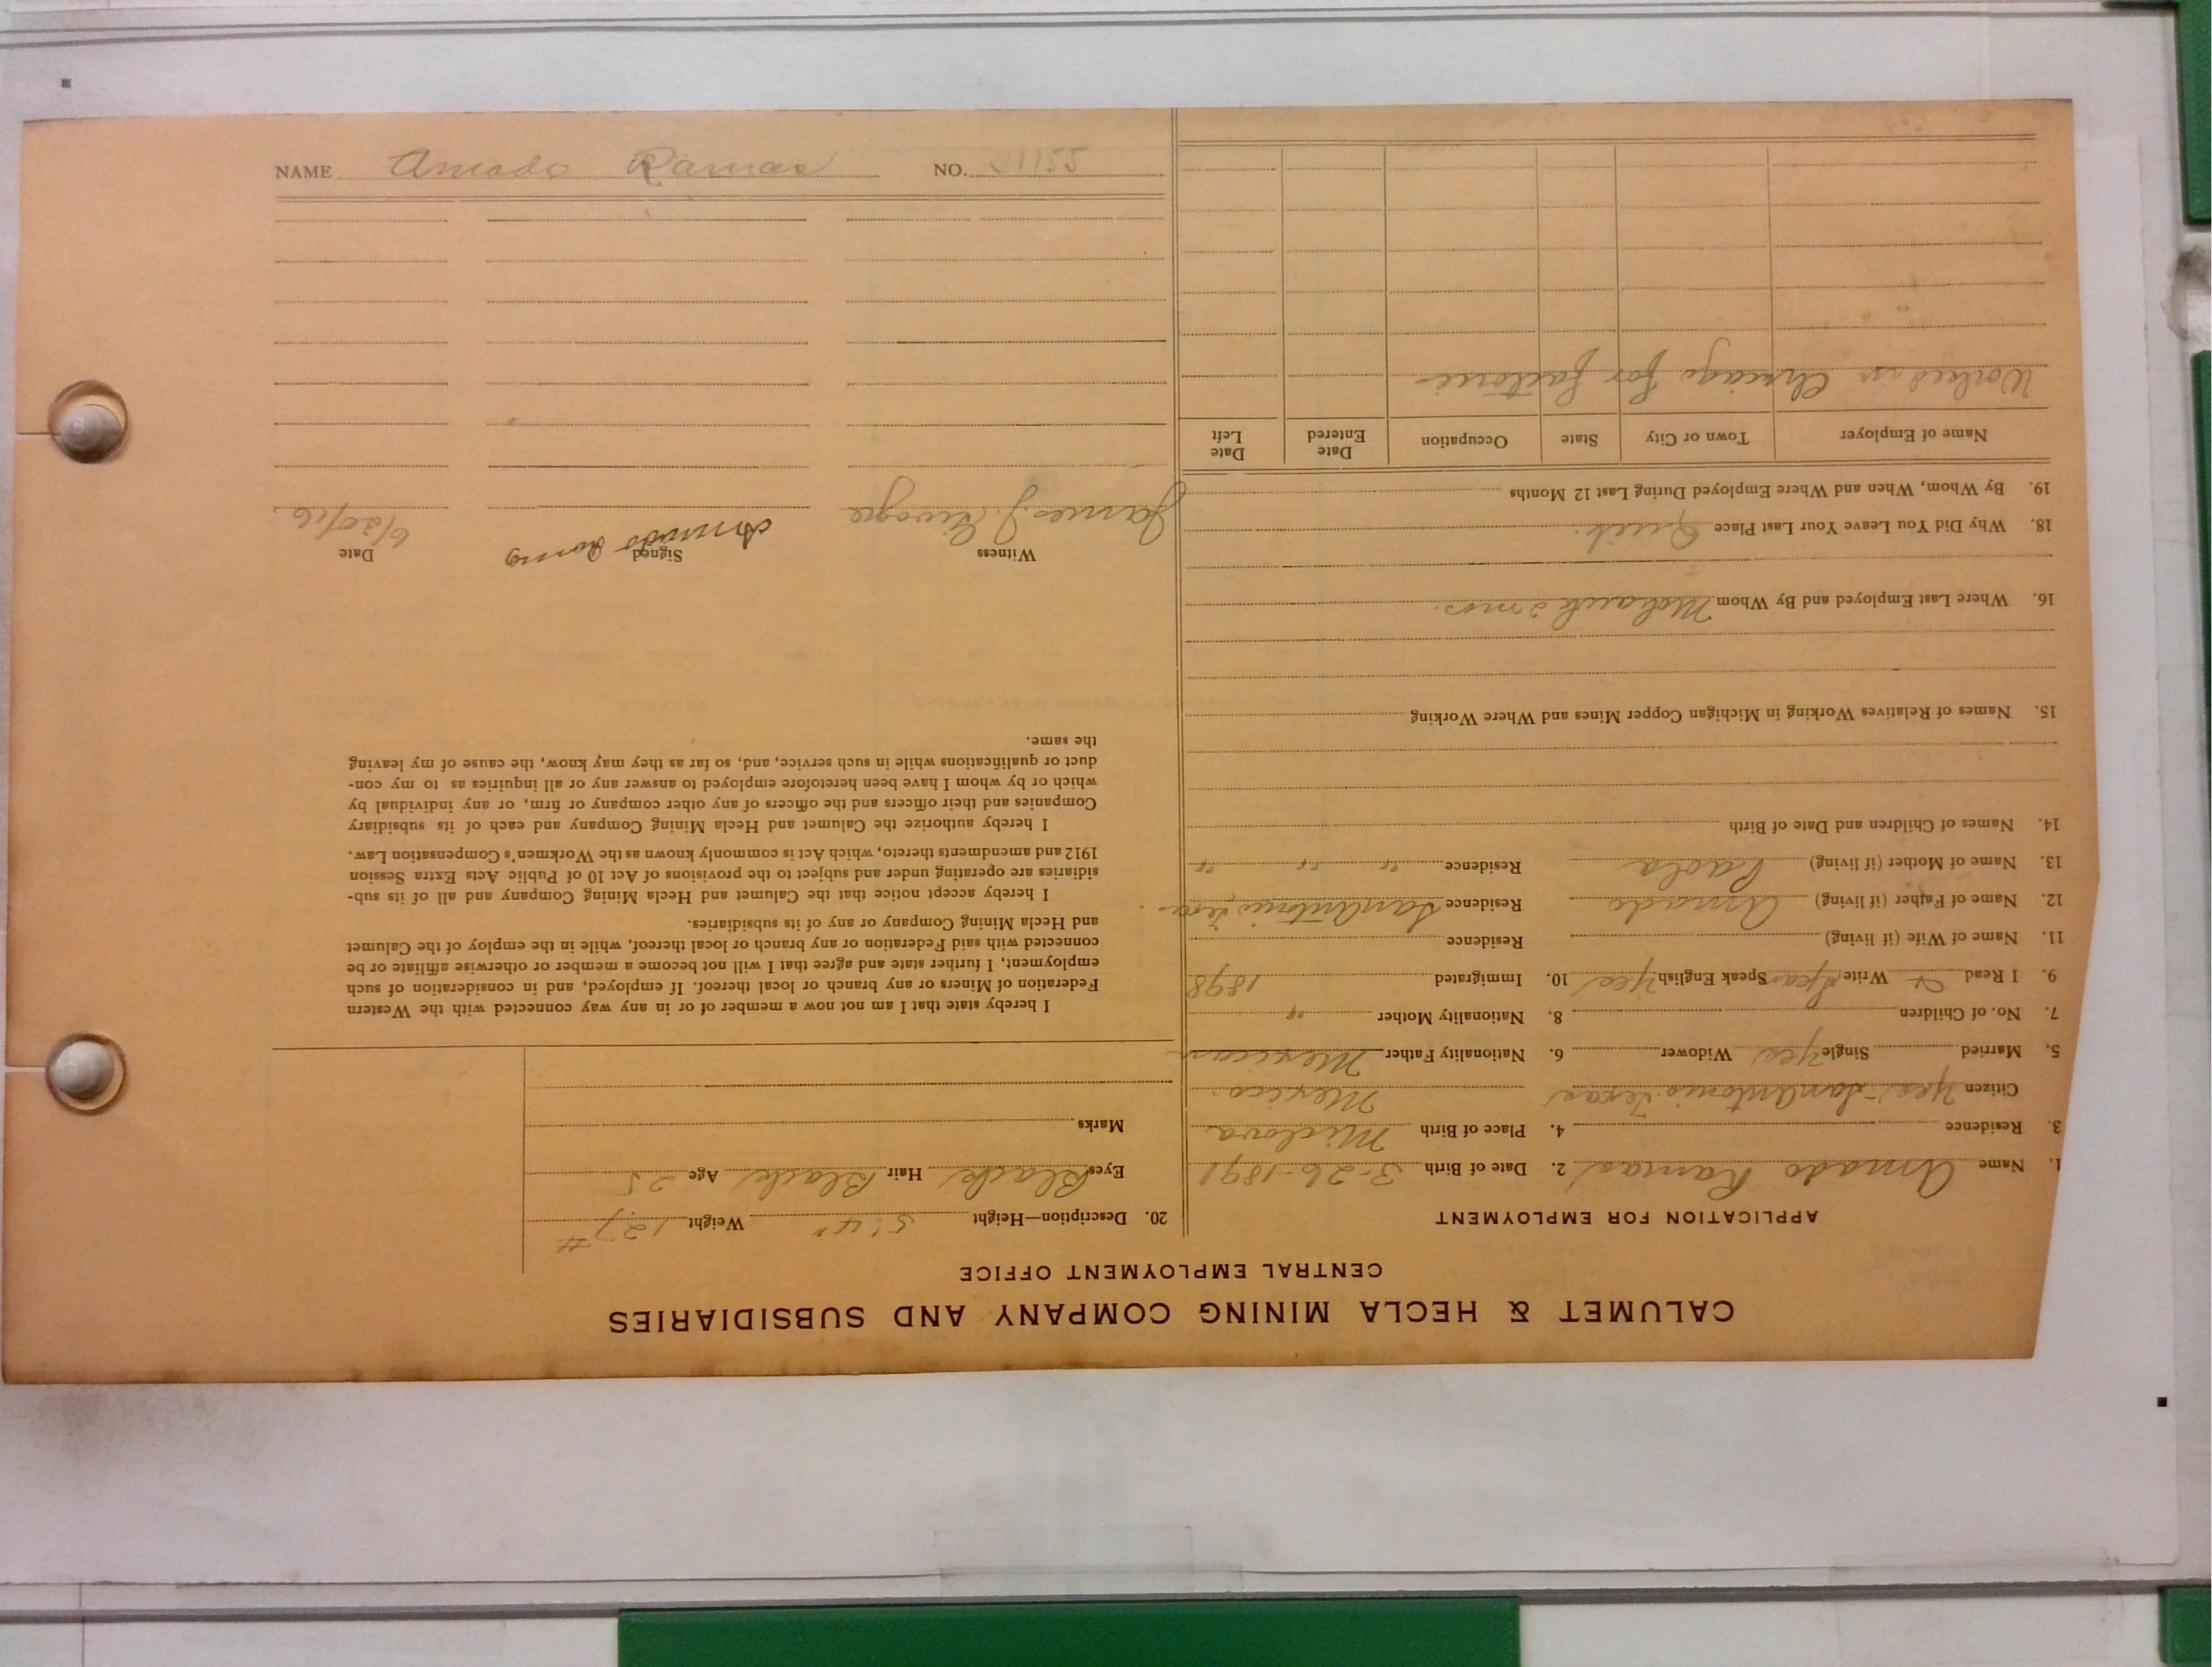 CALUMET & HECLA MINING COMPANY AND SUBSIDIARIES
CENTRAL EMPLOYMENT OFFICE
APPLICATION FOR EMPLOYMENT
1. Name Amado Ramas 2. Date of Birth 3-26-1891
3. Residence 4. Place of Birth Miclova
Citizen Yes San Antonio Texas Mexico.
5. Married Single Yes Widower 6. Nationality Father Mexican
7. No. of Children 8. Nationality Mother "
9. I Read & Write Span Speak English Yes 10. Immigrated 1898
11. Name of Wife (if living) Residence
12. Name of Father (if living) Amado Residence San Antonio, Texas.
13. Name of Mother (if living) Paola Residence " " "
14. Names of Children and Date of Birth
15. Names of Relatives Working in Michigan Copper Mines and Where Working
16. Where Last Employed and By Whom Mohawk 2 mos.
18. Why Did You Leave Your Last Place Quit.
19. By Whom, When and Where Employed During Last 12 Months
Name of Employer Town or City State Occupation Date Entered Date Left
Worked in Chicago for factorie
20. Description—Height 5' 4" Weight 127#
Eyes Black Hair Black Age 25
Marks
I hereby state that I am not now a member of or in any way connected with the Western
Federation of Miners or any branch or local thereof. If employed, and in consideration of such
employment, I further state and agree that I will not become a member or otherwise affiliate or be
connected with said Federation or any branch or local thereof, while in the employ of the Calumet
and Hecla Mining Company or any of its subsidiaries.
I hereby accept notice that the Calumet and Hecla Mining Company and all of its sub-
sidiaries are operating under and subject to the provisions of Act 10 of Public Acts Extra Session
1912 and amendments thereto, which Act is commonly known as the Workmen's Compensation Law.
I hereby authorize the Calumet and Hecla Mining Company and each of its subsidiary
Companies and their officers and the officers of any other company or firm, or any individual by
which or by whom I have been heretofore employed to answer any or all inquiries as to my con-
duct or qualifications while in such service, and, so far as they may know, the cause of my leaving
the same.
Witness Signed Date
James J. Amado 6/20/16
NAME Amado Ramas NO. 31155